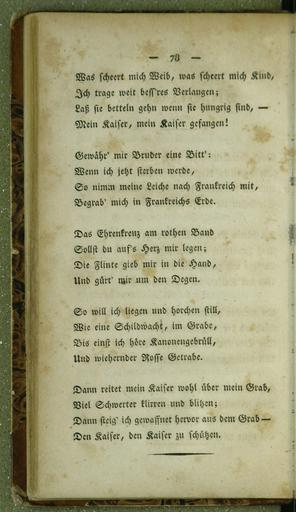 — 78 —
Was scheert mich Weib, was scheert mich Kind,
Ich trage weit bess'res Verlangen;
Laß sie betteln gehn wenn sie hungrig sind, —
Mein Kaiser, mein Kaiser gefangen!
Gewähr' mir Bruder eine Bitt':
Wenn ich jetzt sterben werde,
So nimm meine Leiche nach Frankreich mit,
Begrab' mich in Frankreichs Erde.
Das Ehrenkreuz am rothen Band
Sollst du auf's Herz mir legen;
Die Flinte gieb mir in die Hand,
Und gürt' mir um den Degen.
So will ich liegen und horchen still,
Wie eine Schildwacht, im Grabe,
Bis einst ich höre Kanonengebrüll,
Und wiehernder Rosse Getrabe.
Dann reitet mein Kaiser wohl über mein Grab,
Viel Schwerter klirren und blitzen;
Dann steig' ich gewaffnet hervor aus dem Grab—
Den Kaiser, den Kaiser zu schützen.